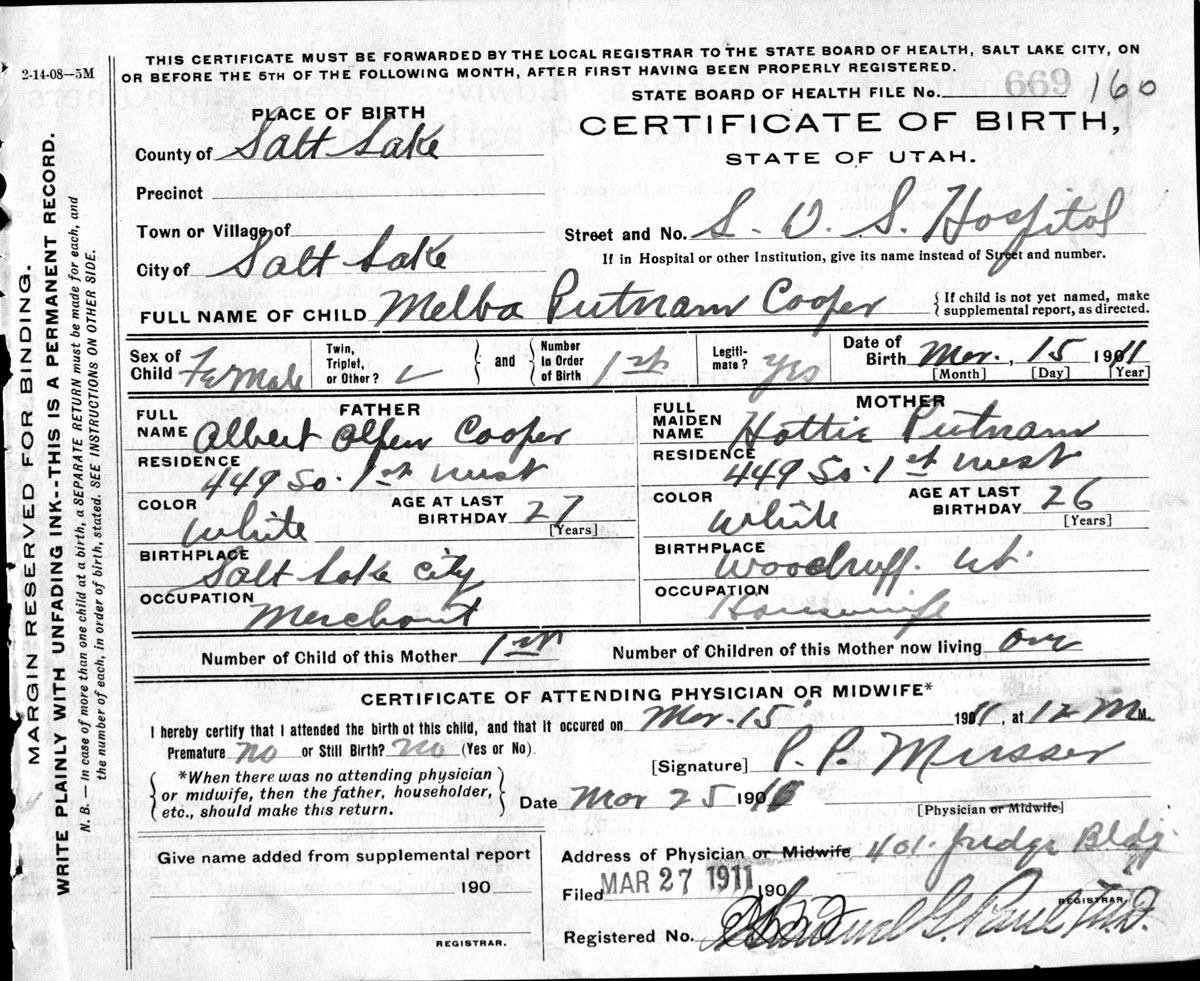 2-14-08—5M
THIS CERTIFICATE MUST BE FORWARDED BY THE LOCAL REGISTRAR TO THE STATE BOARD OF HEALTH, SALT LAKE CITY, ON
OR BEFORE THE 5TH OF THE FOLLOWING MONTH, AFTER FIRST HAVING BEEN PROPERLY REGISTERED.
STATE BOARD OF HEALTH FILE No. 669 160
CERTIFICATE OF BIRTH,
STATE OF UTAH.
PLACE OF BIRTH
County of Salt Lake
Precinct
Town or Village of
City of Salt Lake
Street and No. L. D. S. Hospital
If in Hospital or other Institution, give its name instead of Street and number.
FULL NAME OF CHILD Melba Putnam Cooper
{If child is not yet named, make
supplemental report, as directed.
Sex of Child Female
Twin, Triplet, or Other?
and
Number In Order of Birth 1st
Legiti-mate? Yes
Date of Birth Mar. 15 1911
[Month] [Day] [Year]
FATHER
FULL NAME Albert Cooper
RESIDENCE 449 So. 1st West
COLOR White
AGE AT LAST BIRTHDAY 27
[Years]
BIRTHPLACE Salt Lake City
OCCUPATION Merchant
MOTHER
FULL MAIDEN NAME Hattie Putnam
RESIDENCE 449 So. 1st West
COLOR White
AGE AT LAST BIRTHDAY 26
[Years]
BIRTHPLACE Woodruff. Ut.
OCCUPATION Housewife
Number of Child of this Mother 1st
Number of Children of this Mother now living one
CERTIFICATE OF ATTENDING PHYSICIAN OR MIDWIFE*
I hereby certify that I attended the birth of this child, and that it occured on Mar. 15 1911, at 12 M M.
Premature no or Still Birth? no (Yes or No).
*When there was no attending physician
or midwife, then the father, householder,
etc., should make this return.
[Signature] P. P. Musser
Date Mar 25 190
[Physician or Midwife]
Give name added from supplemental report
190
REGISTRAR.
Address of Physician or Midwife 401 Judge Bldg
Filed MAR 27 1911 190
REGISTRAR.
Registered No. Samuel G. Paul, M.D.
MARGIN RESERVED FOR BINDING.
WRITE PLAINLY WITH UNFADING INK--THIS IS A PERMANENT RECORD.
N. B. — In case of more than one child at a birth, a SEPARATE RETURN must be made for each, and
the number of each, in order of birth, stated. SEE INSTRUCTIONS ON OTHER SIDE.